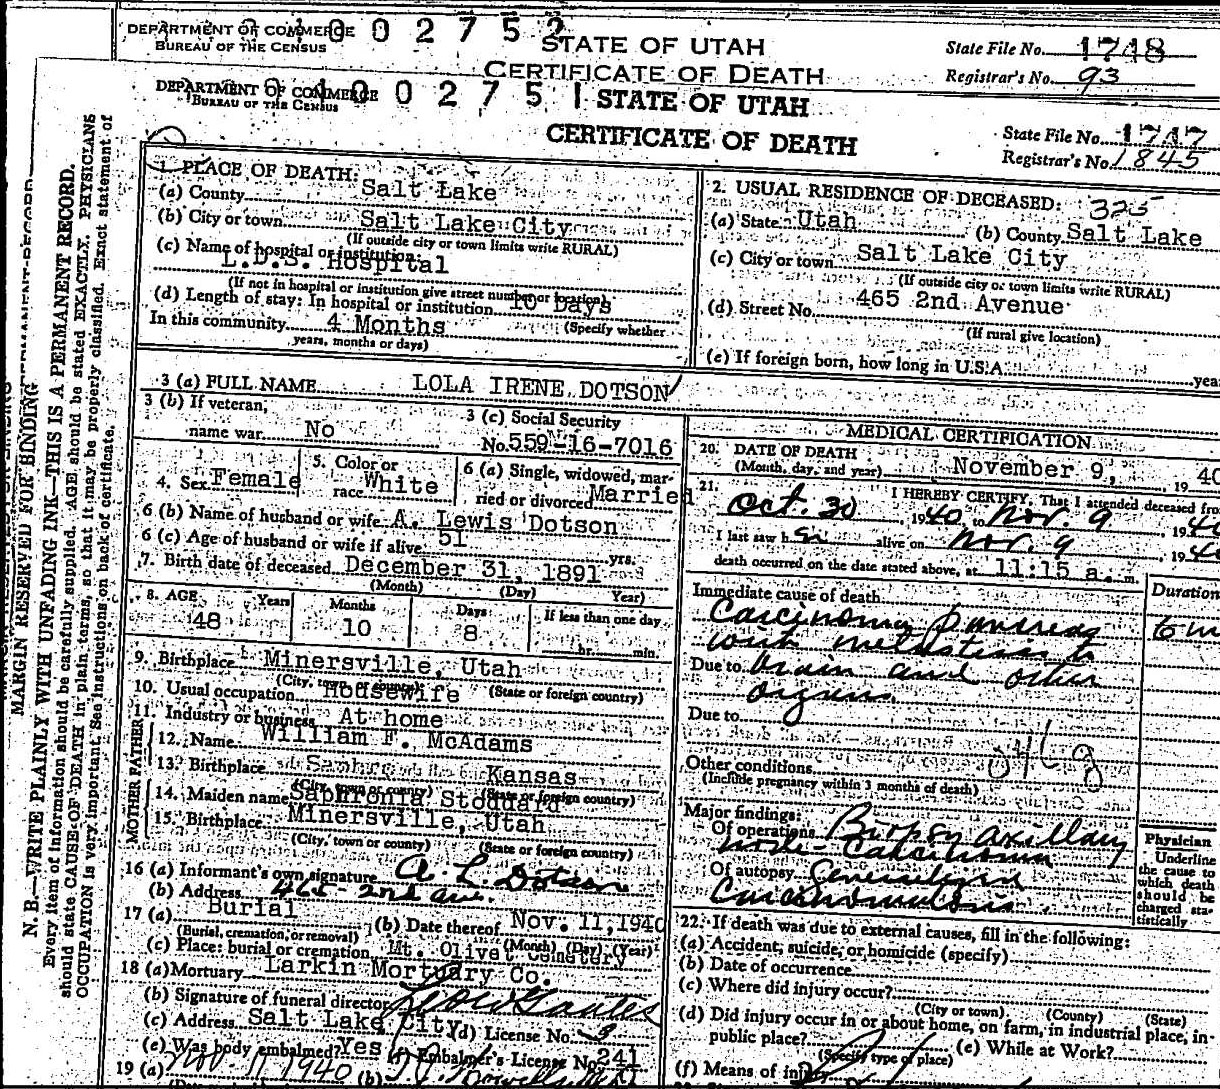 DEPARTMENT OF COMMERCE
BUREAU OF THE CENSUS
STATE OF UTAH
CERTIFICATE OF DEATH
State File No. 1748
Registrar's No. 93
DEPARTMENT OF COMMERCE
BUREAU OF THE CENSUS
STATE OF UTAH
CERTIFICATE OF DEATH
State File No. 1747
Registrar's No. 1845
MARGIN RESERVED FOR BINDING
N. B.—WRITE PLAINLY WITH UNFADING INK—THIS IS A PERMANENT RECORD.
Every item of information should be carefully supplied. AGE should be stated EXACTLY. PHYSICIANS
should state CAUSE OF DEATH in plain terms, so that it may be properly classified. Exact statement of
OCCUPATION is very important. See instructions on back of certificate.
1. PLACE OF DEATH:
(a) County Salt Lake
(b) City or town Salt Lake City
(If outside city or town limits write RURAL)
(c) Name of hospital or institution:
L.D.S. Hospital
(If not in hospital or institution give street number or location)
(d) Length of stay: In hospital or institution 10 Days
In this community 4 Months (Specify whether
years, months or days)
2. USUAL RESIDENCE OF DECEASED: 325
(a) State Utah (b) County Salt Lake
(c) City or town Salt Lake City
(If outside city or town limits write RURAL)
(d) Street No. 465 2nd Avenue
(If rural give location)
(e) If foreign born, how long in U.S.A. year
3 (a) FULL NAME LOLA IRENE DOTSON
3 (b) If veteran,
name war No
3 (c) Social Security
No. 559-16-7016
4. Sex Female
5. Color or
race White
6 (a) Single, widowed, mar-
ried or divorced Married
6 (b) Name of husband or wife A. Lewis Dotson
6 (c) Age of husband or wife if alive 51 yrs.
7. Birth date of deceased December 31, 1891
(Month) (Day) Year)
8. AGE Years Months Days If less than one day
48 10 8 hr. min.
9. Birthplace Minersville, Utah
(City, town or county) (State or foreign country)
10. Usual occupation Housewife
11. Industry or business At home
FATHER
12. Name William F. McAdams
13. Birthplace Kansas
(City, town or county) (State or foreign country)
MOTHER
14. Maiden name Saphronia Stoddard
15. Birthplace Minersville, Utah
(City, town or county) (State or foreign country)
16 (a) Informant's own signature A. L. Dotson
(b) Address 465 - 2nd ave.
17 (a) Burial (b) Date thereof Nov. 11, 1940
(Burial, cremation, or removal) (Month) (Day) (Year)
(c) Place: burial or cremation Mt. Olivet Cemetery
18 (a) Mortuary Larkin Mortuary Co.
(b) Signature of funeral director
(c) Address Salt Lake City (d) License No. 3
(e) Was body embalmed? Yes (f) Embalmer's License No. 241
19 (a) Nov-11 1940 (b)
MEDICAL CERTIFICATION
20. DATE OF DEATH
(Month, day, and year) November 9, 19 40
21. I HEREBY CERTIFY, That I attended deceased from
Oct. 30 1940 to Nov. 9 1940
I last saw her alive on Nov. 9 1940
death occurred on the date stated above, at 11:15 a.m.
Immediate cause of death Duration
Carcinoma Pancreas 6 m
with metastasis to
Due to brain and other
organs
Due to
Other conditions
(Include pregnancy within 3 months of death)
46g
Major findings:
Of operations Biopsy axillary
node - carcinoma
Of autopsy Generalized
Carcinomatosis
Physician
Underline
the cause to
which death
should be
charged sta-
tistically
22. If death was due to external causes, fill in the following:
(a) Accident, suicide, or homicide (specify)
(b) Date of occurrence
(c) Where did injury occur?
(City or town) (County) (State)
(d) Did injury occur in or about home, on farm, in industrial place, in-
public place? (e) While at Work?
(Specify type of place)
(f) Means of injury